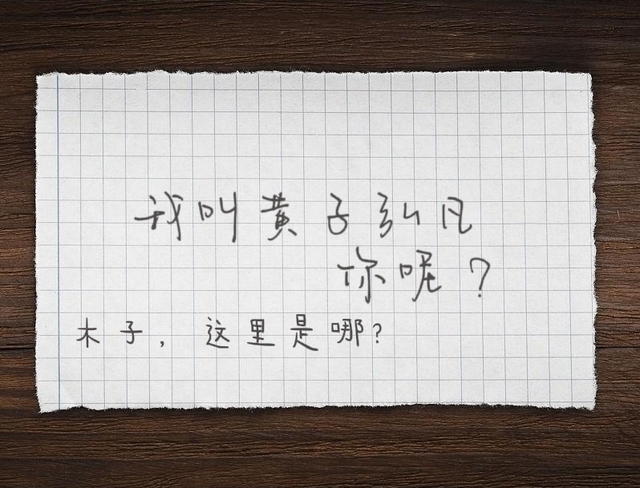 我叫黄子弘凡
你呢？
木子，这里是哪？